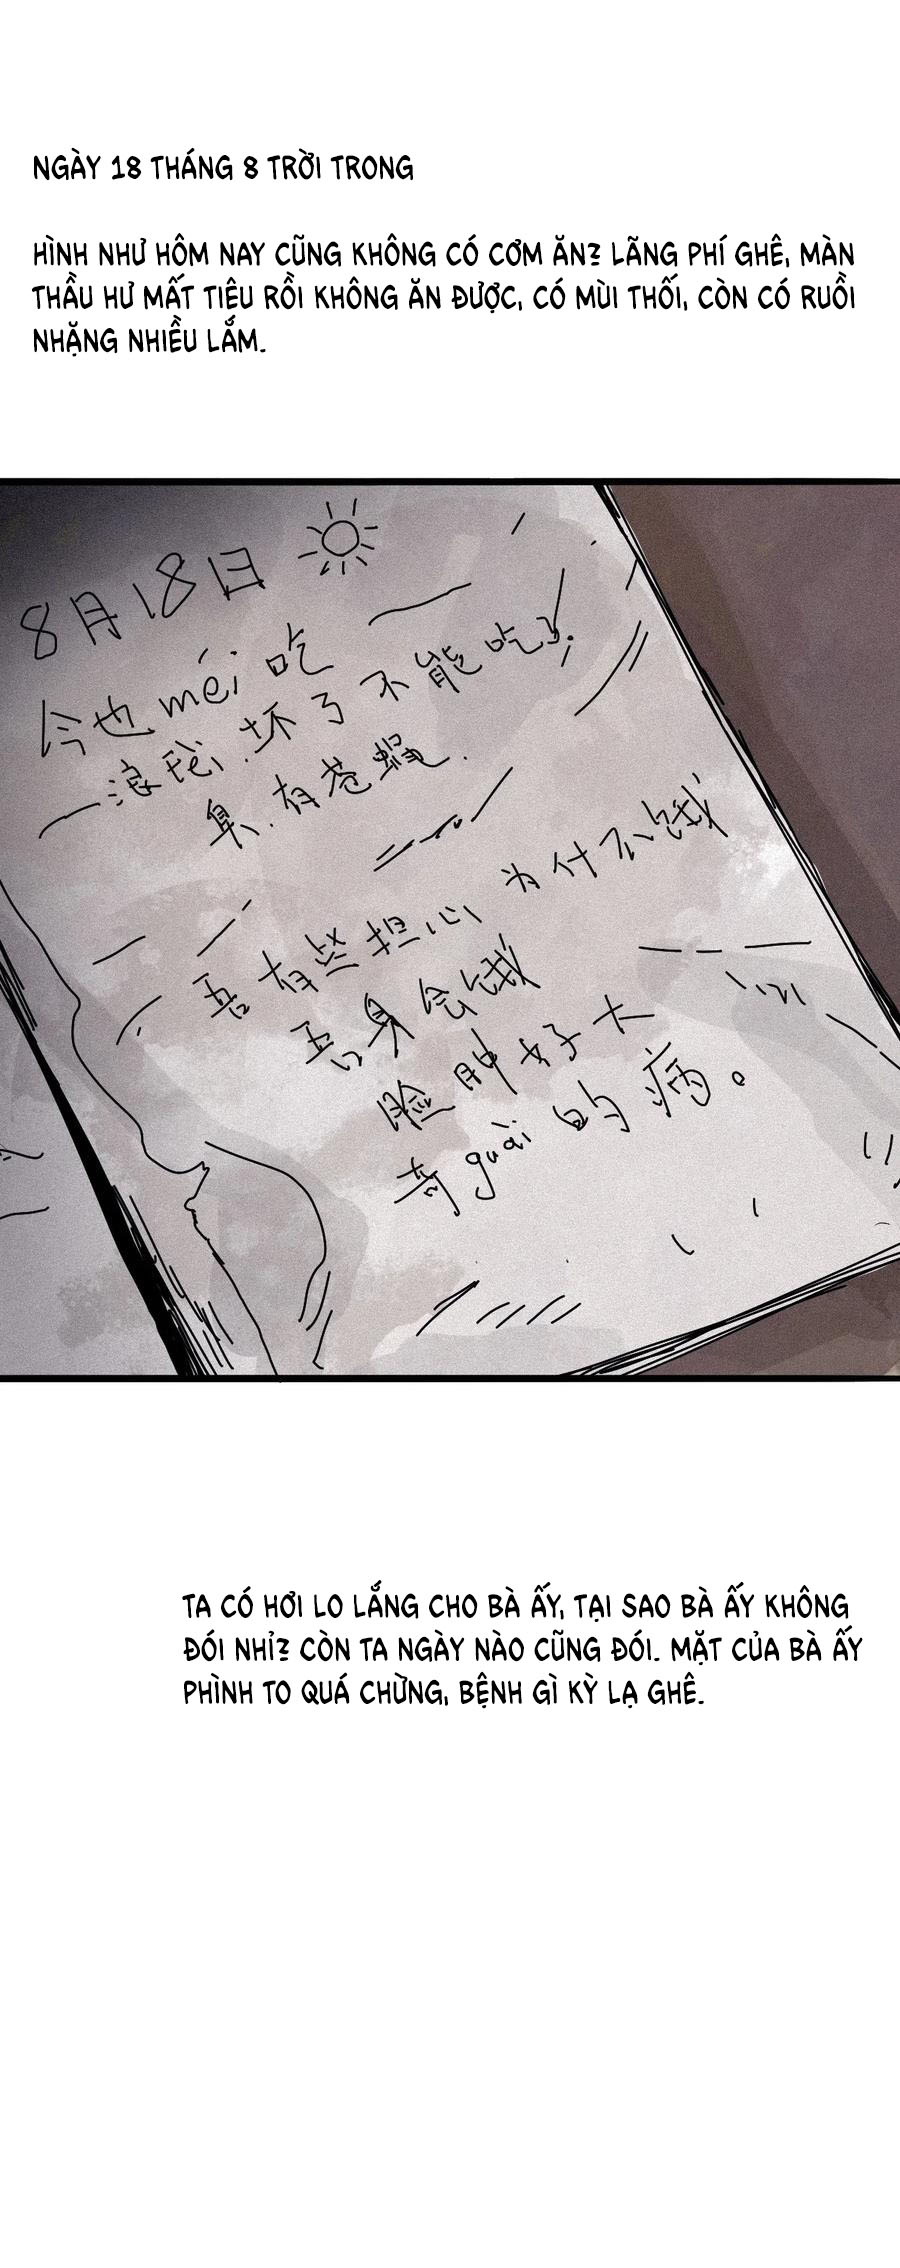 NGÀY 18 THÁNG 8 TRỜI TRONG
HÌNH NHƯ HÔM NAY CŨNG KHÔNG CÓ CƠM ĂN? LÃNG PHÍ GHÊ, MÀN
THẦU HƯ MẤT TIÊU RỒI KHÔNG ĂN ĐƯỢC, CÓ MÙI THỐI, CÒN CÓ RUỒI
NHẶNG NHIỀU LẮM.
8月18日
今也méi吃
一浪 坏了不能吃了.
臭.有苍蝇.
吾有些担心 为什不饿
吾身会饿
脸肿好大
奇guài的病。
TA CÓ HƠI LO LẮNG CHO BÀ ẤY, TẠI SAO BÀ ẤY KHÔNG
ĐÓI NHỈ? CÒN TA NGÀY NÀO CŨNG ĐÓI. MẶT CỦA BÀ ẤY
PHÌNH TO QUÁ CHỪNG, BỆNH GÌ KỲ LẠ GHÊ.